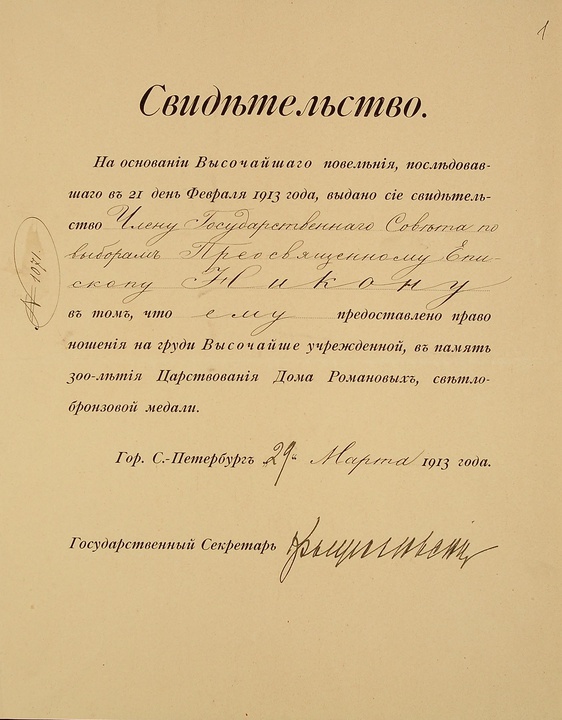 1
Свидѣтельство.
На основаніи Высочайшаго повелѣнія, послѣдовав-
шаго въ 21 день Февраля 1913 года, выдано сіе свидѣтель-
ство Члену Государственнаго Совѣта по
выборамъ Преосвященному Епи-
скопу Никону
въ томъ, что ему предоставлено право
ношенія на груди Высочайше учрежденной, въ память
300-лѣтія Царствованія Дома Романовыхъ, свѣтло-
бронзовой медали.
№ 1071
Гор. С.-Петербургъ „29“ Марта 1913 года.
Государственный Секретарь